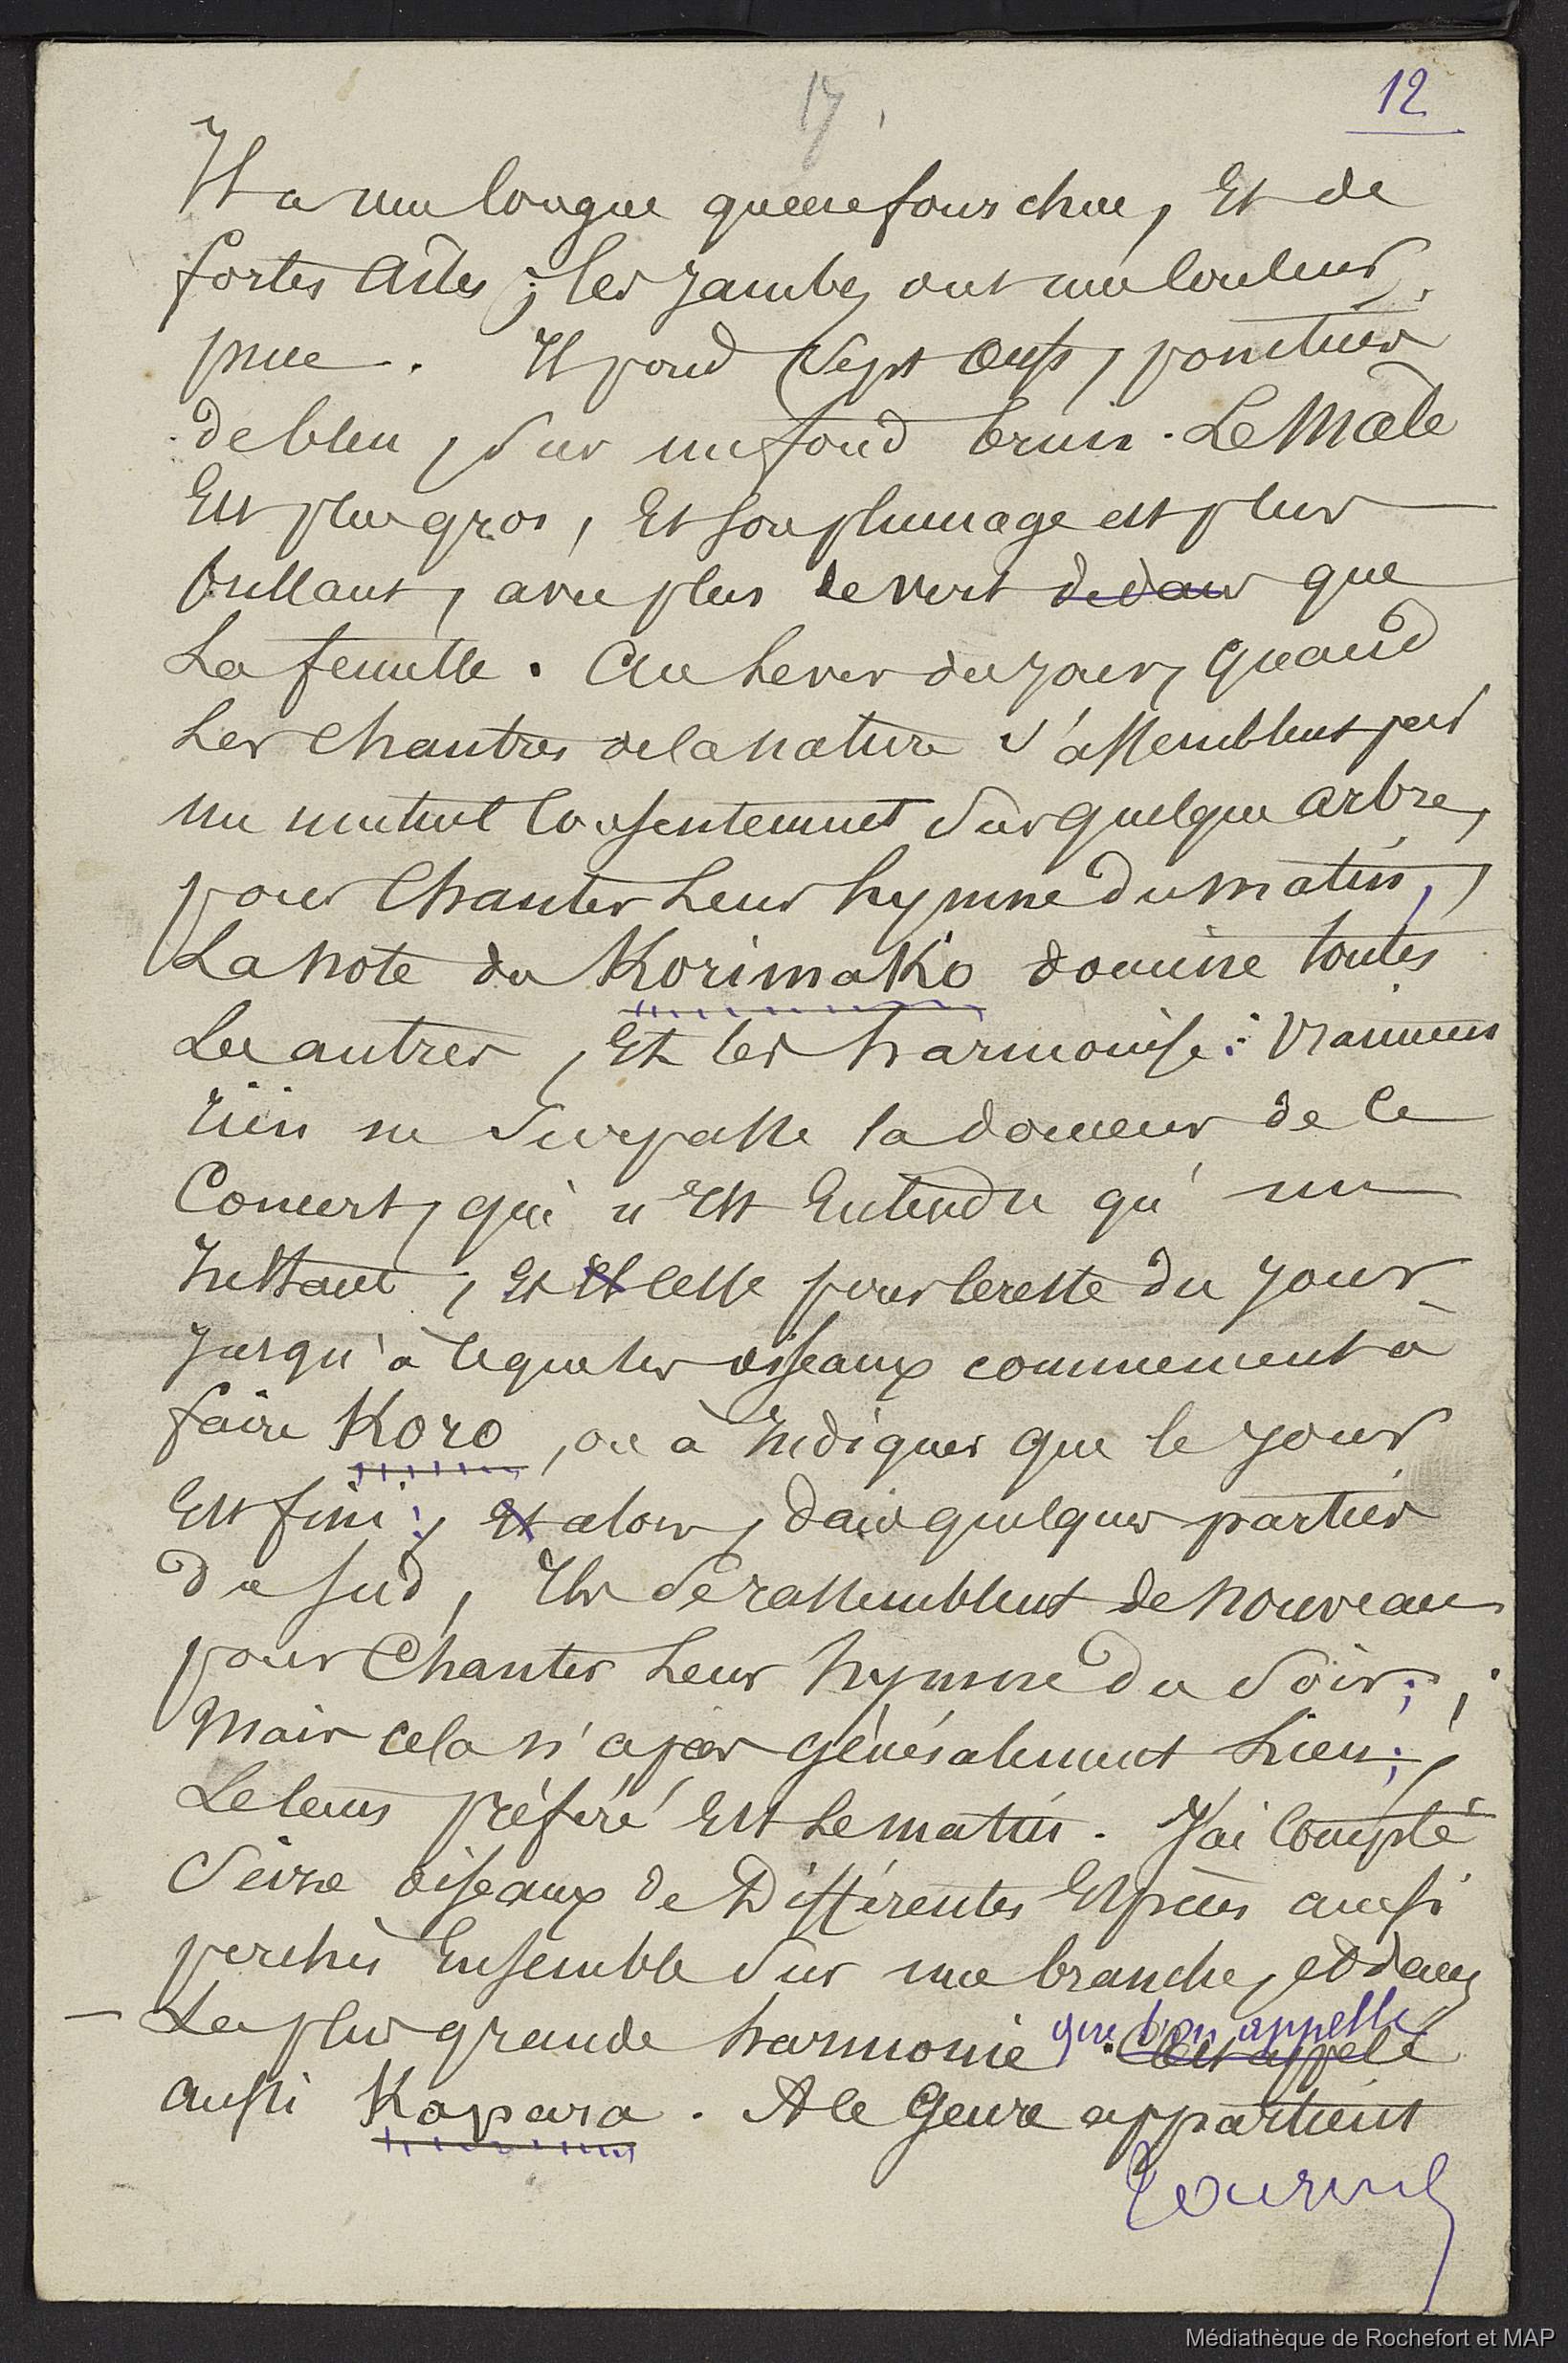 17.
12
Il a une longue queue fourchue, Et de
fortes Ailes ; les jambes ont une couleur
prune. Il pond Sept Œufs, ponctués
de bleu, Sur un fond brun. Le Mâle
Est plus gros, Et son plumage est plus
brillant, avec plus de vert dedans que
La femelle. Au Lever du jour, Quand
Les Chantres de la Nature S'assemblent par
un mutuel Consentement Sur quelque arbre,
pour Chanter Leur hymne du matin,
La Note du Korimako domine toutes
Les autres, Et les harmonise : Vraiment
rien ne Surpasse la douceur de ce
Concert, qui n'Est Entendu qu'un
Instant, Et Il cesse pour le reste du jour
Jusqu'à ce que les oiseaux commencent à
faire Koro, ou à Indiquer que le jour
Est fini ; Et alors, dans quelques parties
du Sud, Ils Se rassemblent de Nouveau
pour Chanter Leur hymne du Soir ;
Mais cela n'a pas Généralement Lieu ;
Le tems préféré Est Le matin. J'ai Compté
Seize oiseaux de Différentes Espèces ainsi
perchés Ensemble Sur une branche, et dans
– La plus grande harmonie que l'on appelle
. C'est appelé
aussi Kopara. A ce Genre appartient
Tournez